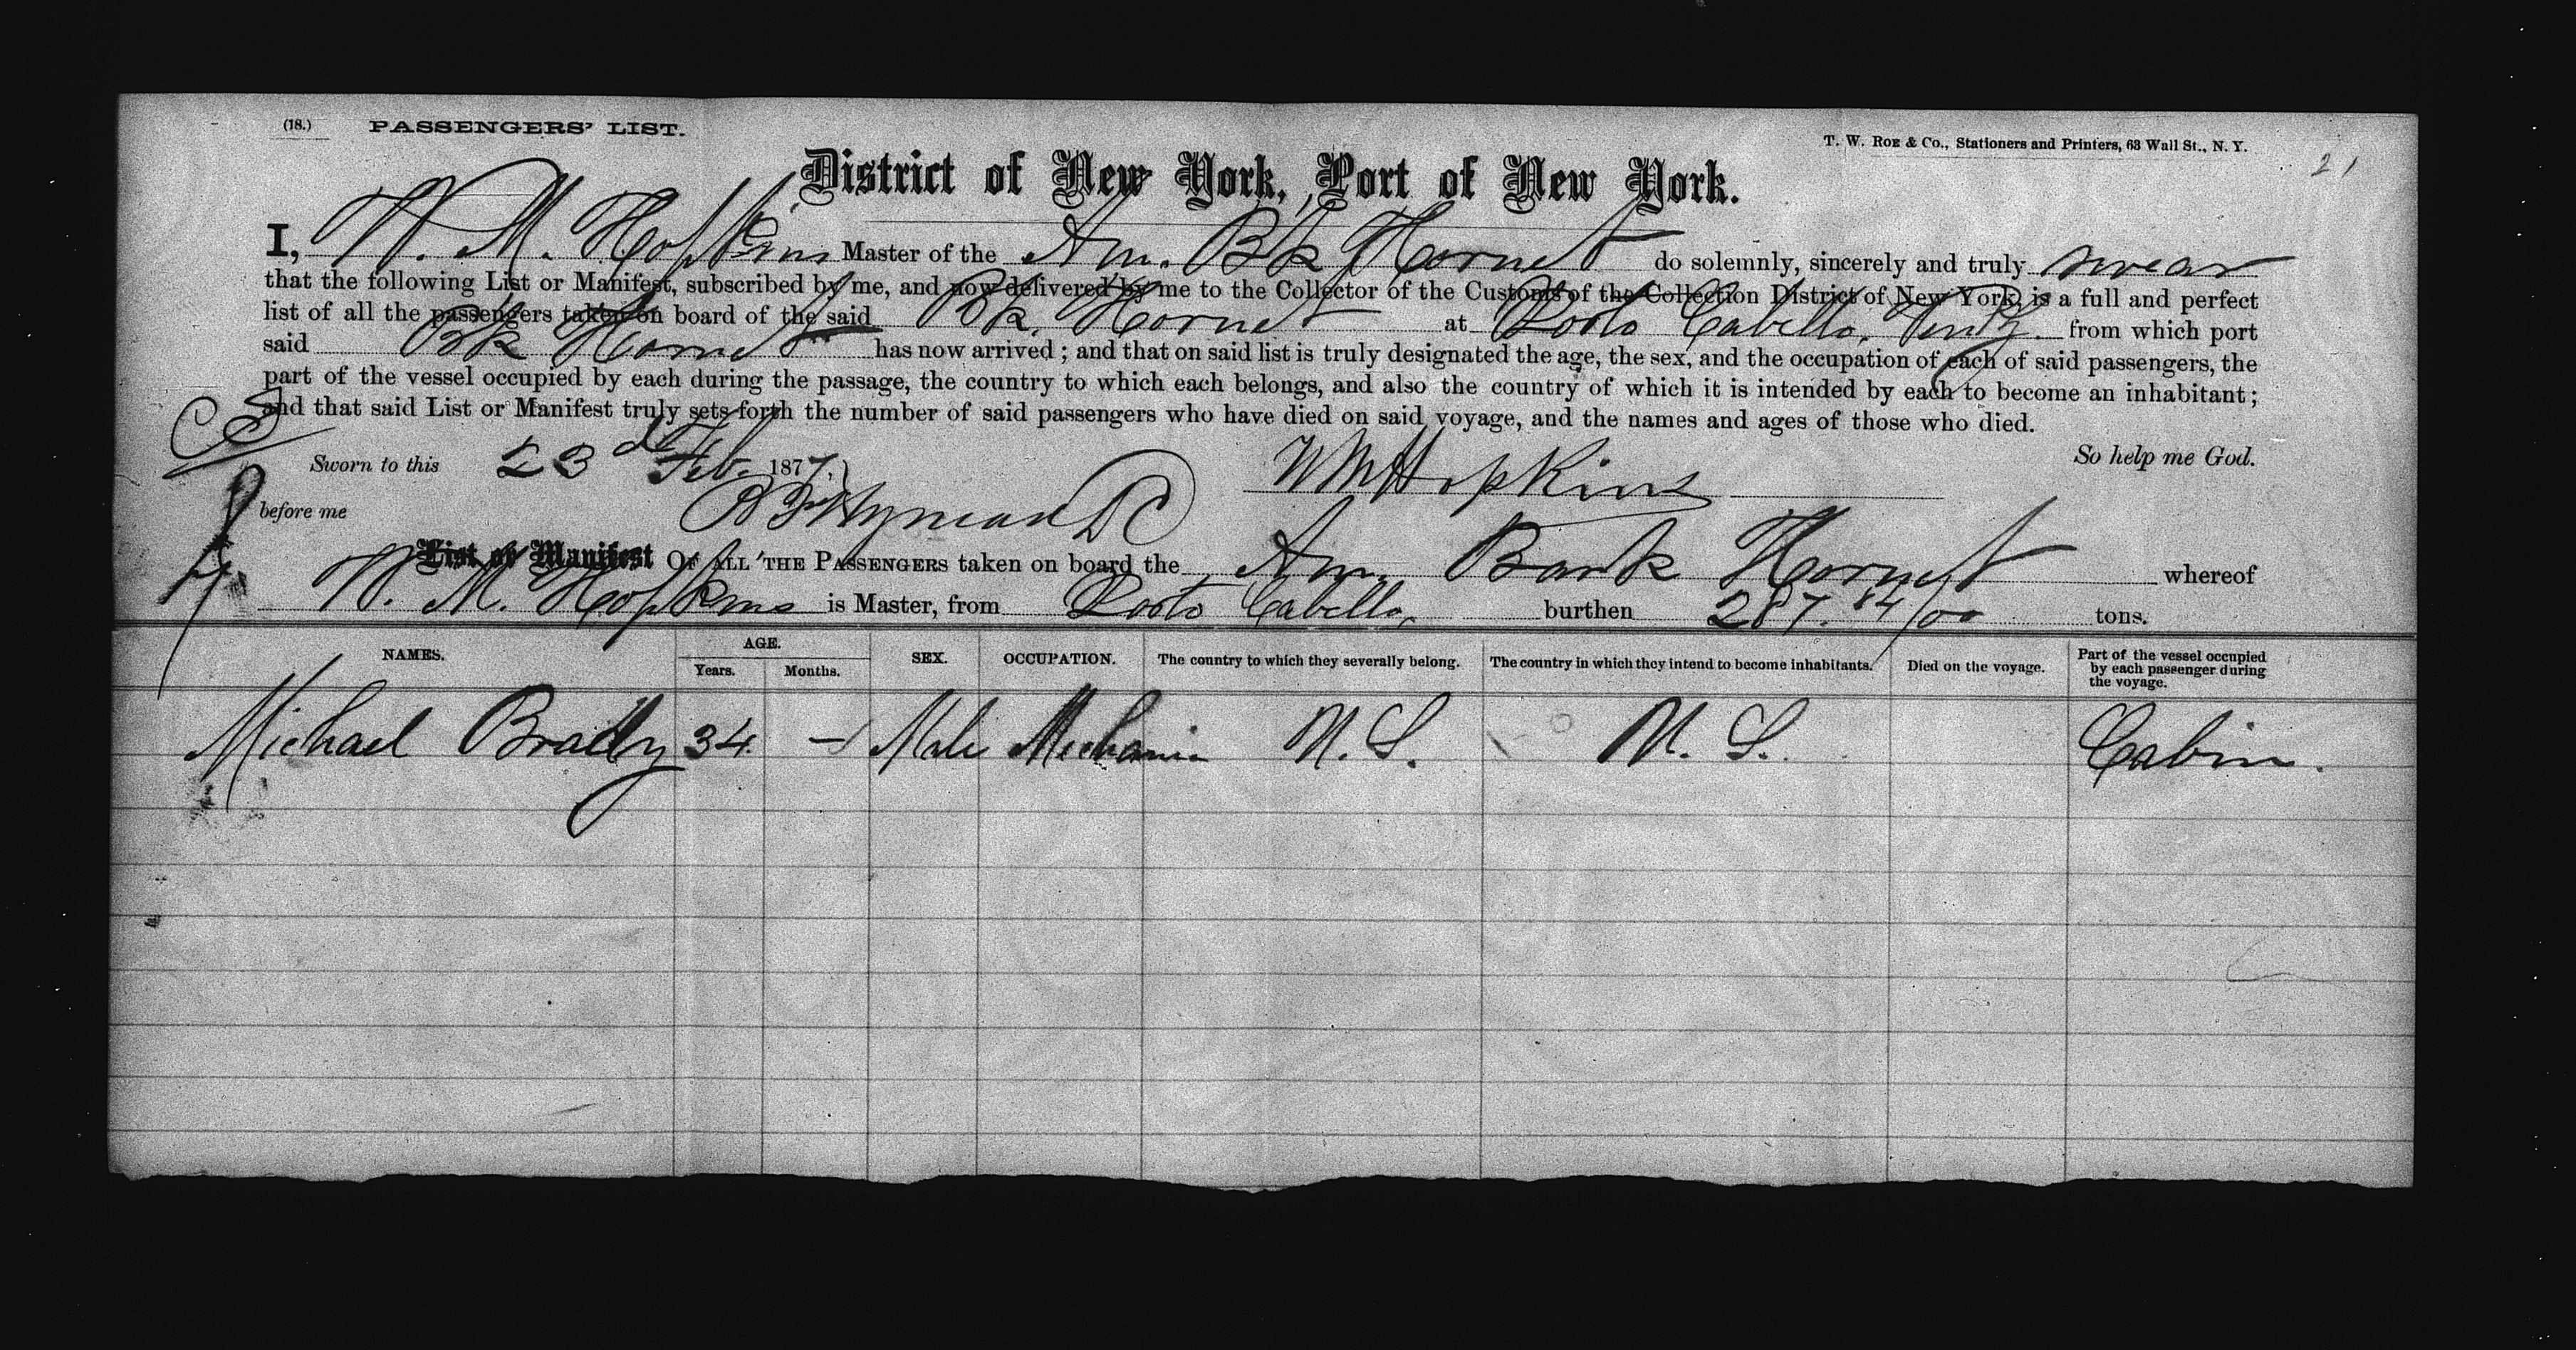 (18.) PASSENGERS' LIST.
T. W. ROE & CO., Stationers and Printers, 63 Wall St., N. Y.
21
District of New York, Port of New York.
I, W. M. Hopkins Master of the Am. Bk Hornet do solemnly, sincerely and truly swear
that the following List or Manifest, subscribed by me, and now delivered by me to the Collector of the Customs of the Collection District of New York, is a full and perfect
list of all the passengers taken on board of the said Bk. Hornet at Porto Cabello, from which port
said Bk Hornet has now arrived; and that on said list is truly designated the age, the sex, and the occupation of each of said passengers, the
part of the vessel occupied by each during the passage, the country to which each belongs, and also the country of which it is intended by each to become an inhabitant;
and that said List or Manifest truly sets forth the number of said passengers who have died on said voyage, and the names and ages of those who died.
Sworn to this 23d Feb. 1877. WM Hopkins So help me God.
before me Wyman DC
List or Manifest OF ALL THE PASSENGERS taken on board the Am. Bark Hornet whereof
W. M. Hopkins is Master, from Porto Cabello, burthen 287.84/00 tons.
NAMES. AGE. Years. Months. SEX. OCCUPATION. The country to which they severally belong. The country in which they intend to become inhabitants. Died on the voyage. Part of the vessel occupied by each passenger during the voyage.
Michael Brady 34 - Male Mechanic U. S. U. S. Cabin.